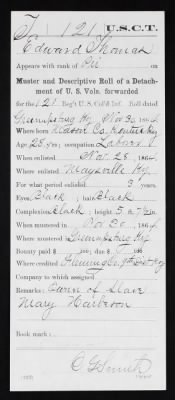 T 121 U.S.C.T.
Edward Thomas
Appears with rank of Pvt on
Muster and Descriptive Roll of a Detach-
ment of U. S. Vols. forwarded
for the 121 Reg't U.S. Col'd Inf. Roll dated
Ky, Nov 30, 1864
Where born Mason Co, Kentucky
Age 25 y'rs; occupation Laborer
When enlisted Nov 26, 1864
Where enlisted Maysville Ky
For what period enlisted 3 years.
Eyes Black; hair Black
Complexion Black; height 5 ft. 7 in.
When mustered in Nov 30, 1864
Where mustered in Ky
Bounty paid $ 100; due $ 100
Where credited Fleming Co, 9th Dist Ky
Company to which assigned
Remarks: Owner of Slave
Mary Harbeson
Book mark:
Smith